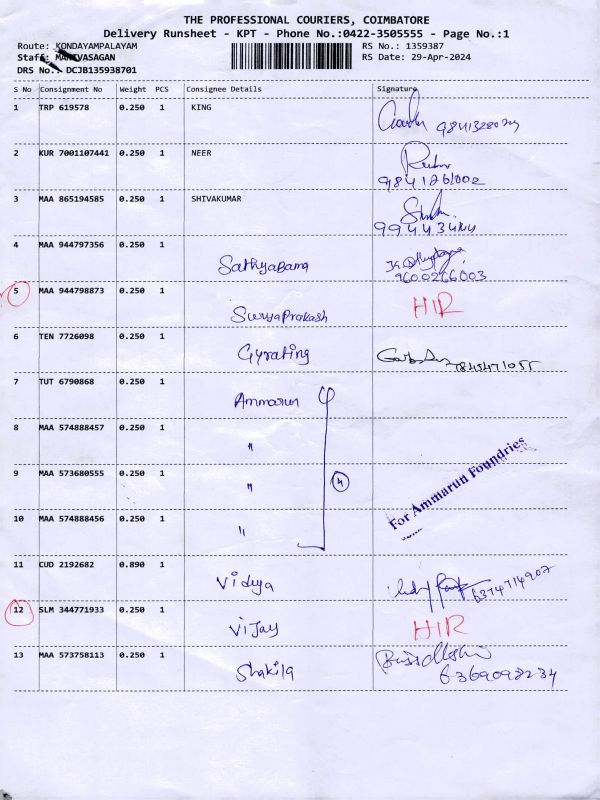 THE PROFESSIONAL COURIERS, COIMBATORE
Delivery Runsheet - KPT - Phone No.:0422-3505555 - Page No.:1
Route: KONDAYAMPALAYAM RS No.: 1359387
Staff: VASAGAN RS Date: 29-Apr-2024
DRS No.: DCJB135938701
S No Consignment No Weight PCS Consignee Details Signature
1 TRP 619578 0.250 1 KING
2 KUR 7001107441 0.250 1 NEER
9841261002
3 MAA 865194585 0.250 1 SHIVAKUMAR
4 MAA 944797356 0.250 1 Sathyabama
9600266003
5 MAA 944798873 0.250 1 Suryaprakash HIR
6 TEN 7726098 0.250 1 Gyrating
7 TUT 6790868 0.250 1 Ammarun
8 MAA 574888457 0.250 1 "
9 MAA 573680555 0.250 1 " 4
10 MAA 574888456 0.250 1 "
For Ammarun Foundries
11 CUD 2192682 0.890 1 Vidya 6374714907
12 SLM 344771933 0.250 1 Vijay HIR
13 MAA 573758113 0.250 1 Shakila
6369098234